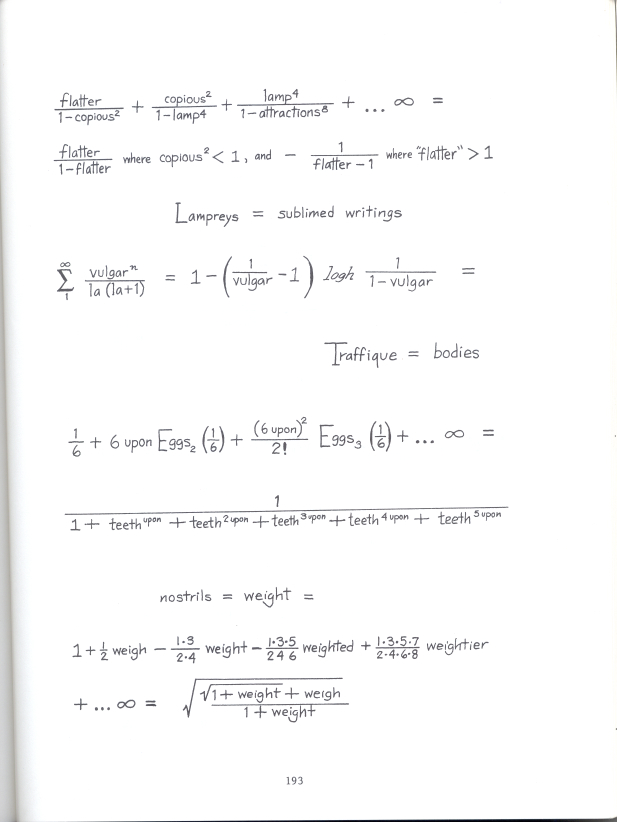 flatter/1-copious² + copious²/1-lamp4 + lamp⁴/1-attractions⁸ + ... ∞ =
flatter/1-flatter where copious² < 1, and - 1/flatter-1 where "flatter" > 1
Lampreys = sublimed writings
∞ Σ 1 vulgarⁿ/la (la+1) = 1 - (1/vulgar - 1) logh 1/1-vulgar =
Traffique = bodies
1/6 + 6 upon Eggs₂ (1/6) + (6 upon)²/2! Eggs₃ (1/6) + ... ∞ =
1/1 + teeth^upon + teeth^2 upon + teeth^3 upon + teeth^4 upon + teeth^5 upon
nostrils = weight =
1 + 1/2 weigh - 1·3/2·4 weight - 1·3·5/2 4 6 weighted + 1·3·5·7/2·4·6·8 weightier
+ ... ∞ = √(√(1 + weight) + weigh/1 + weight)
193